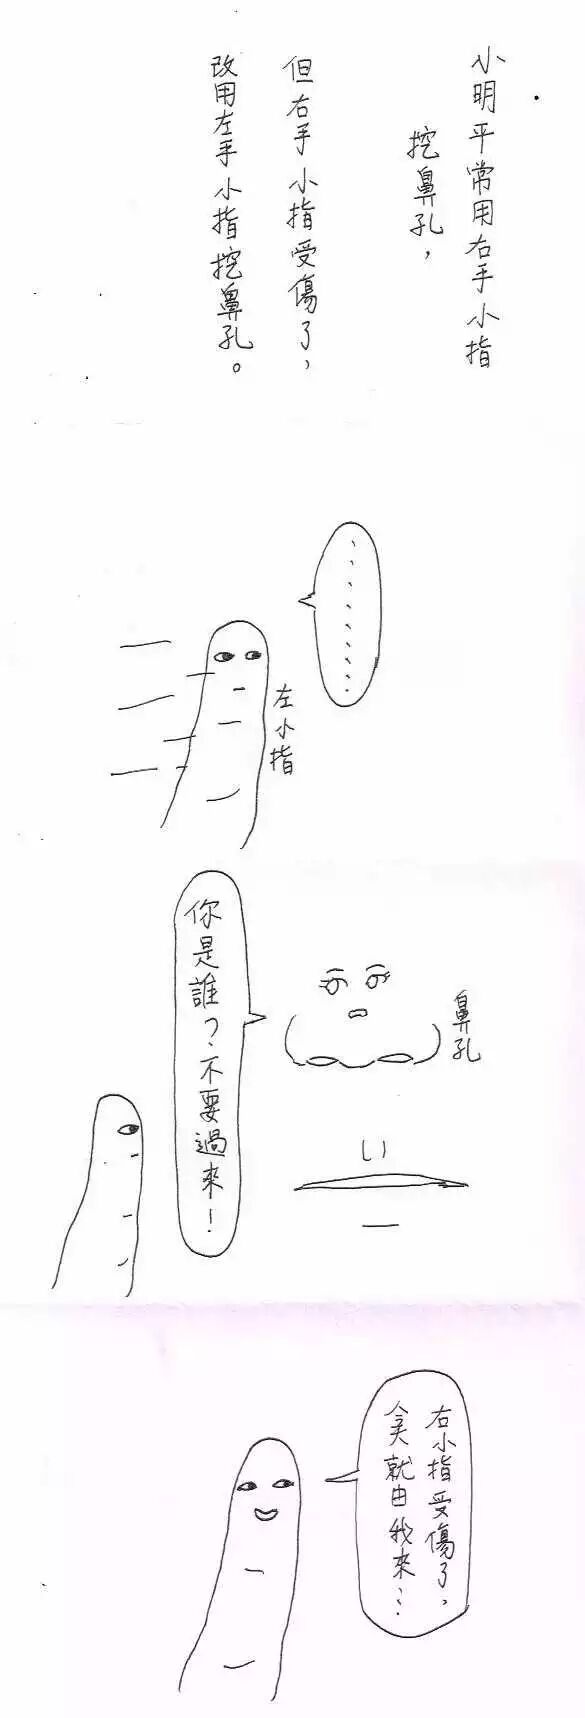 小明平常用右手小指
挖鼻孔，
但右手小指受傷了，
改用左手小指挖鼻孔。
、、、、、、、、、
左小指
你是誰？不要過來！
鼻孔
右小指受傷了，
今天就由我來…